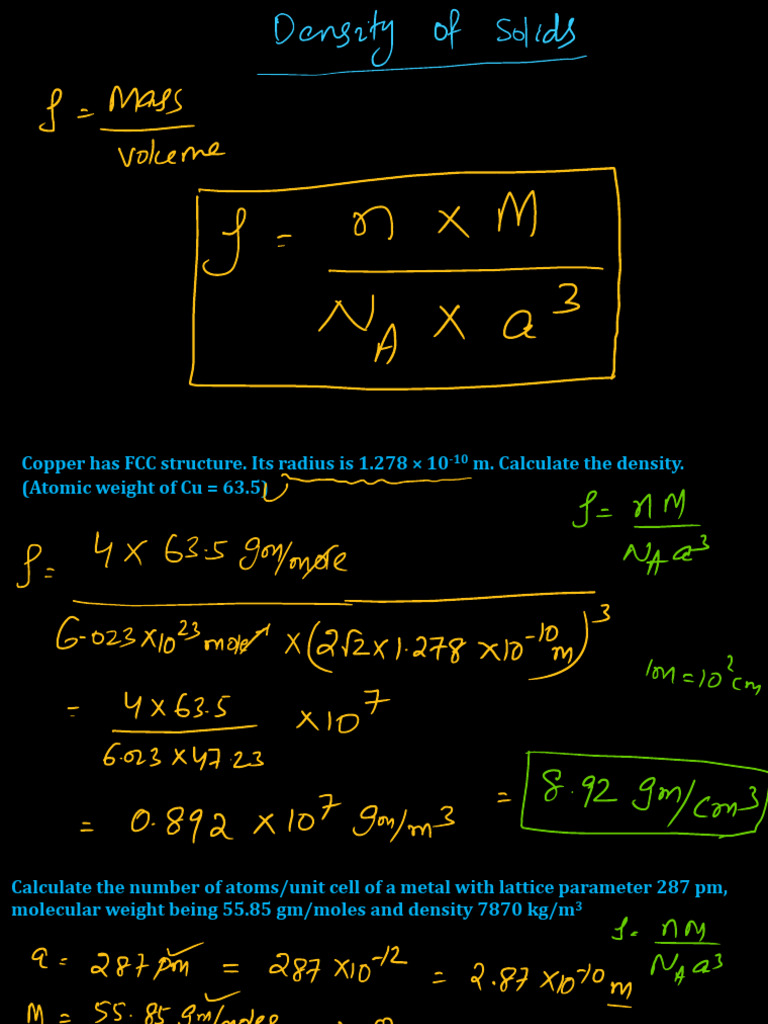 Density of Solids
ρ = Mass / Volume
ρ = n × M / N_A × a³
Copper has FCC structure. Its radius is 1.278 × 10⁻¹⁰ m. Calculate the density.
(Atomic weight of Cu = 63.5)
ρ = nM / N_A a³
ρ = 4 × 63.5 gm/mole / 6.023 × 10²³ mole⁻¹ × (2√2 × 1.278 × 10⁻¹⁰ m)³
1m = 10² cm
= 4 × 63.5 / 6.023 × 47.23 × 10⁷
= 0.892 × 10⁷ gm/m³ = 8.92 gm/cm³
Calculate the number of atoms/unit cell of a metal with lattice parameter 287 pm,
molecular weight being 55.85 gm/moles and density 7870 kg/m³
ρ = nM / N_A a³
a = 287 pm = 287 × 10⁻¹² = 2.87 × 10⁻¹⁰ m
M = 55.85 gm/moles